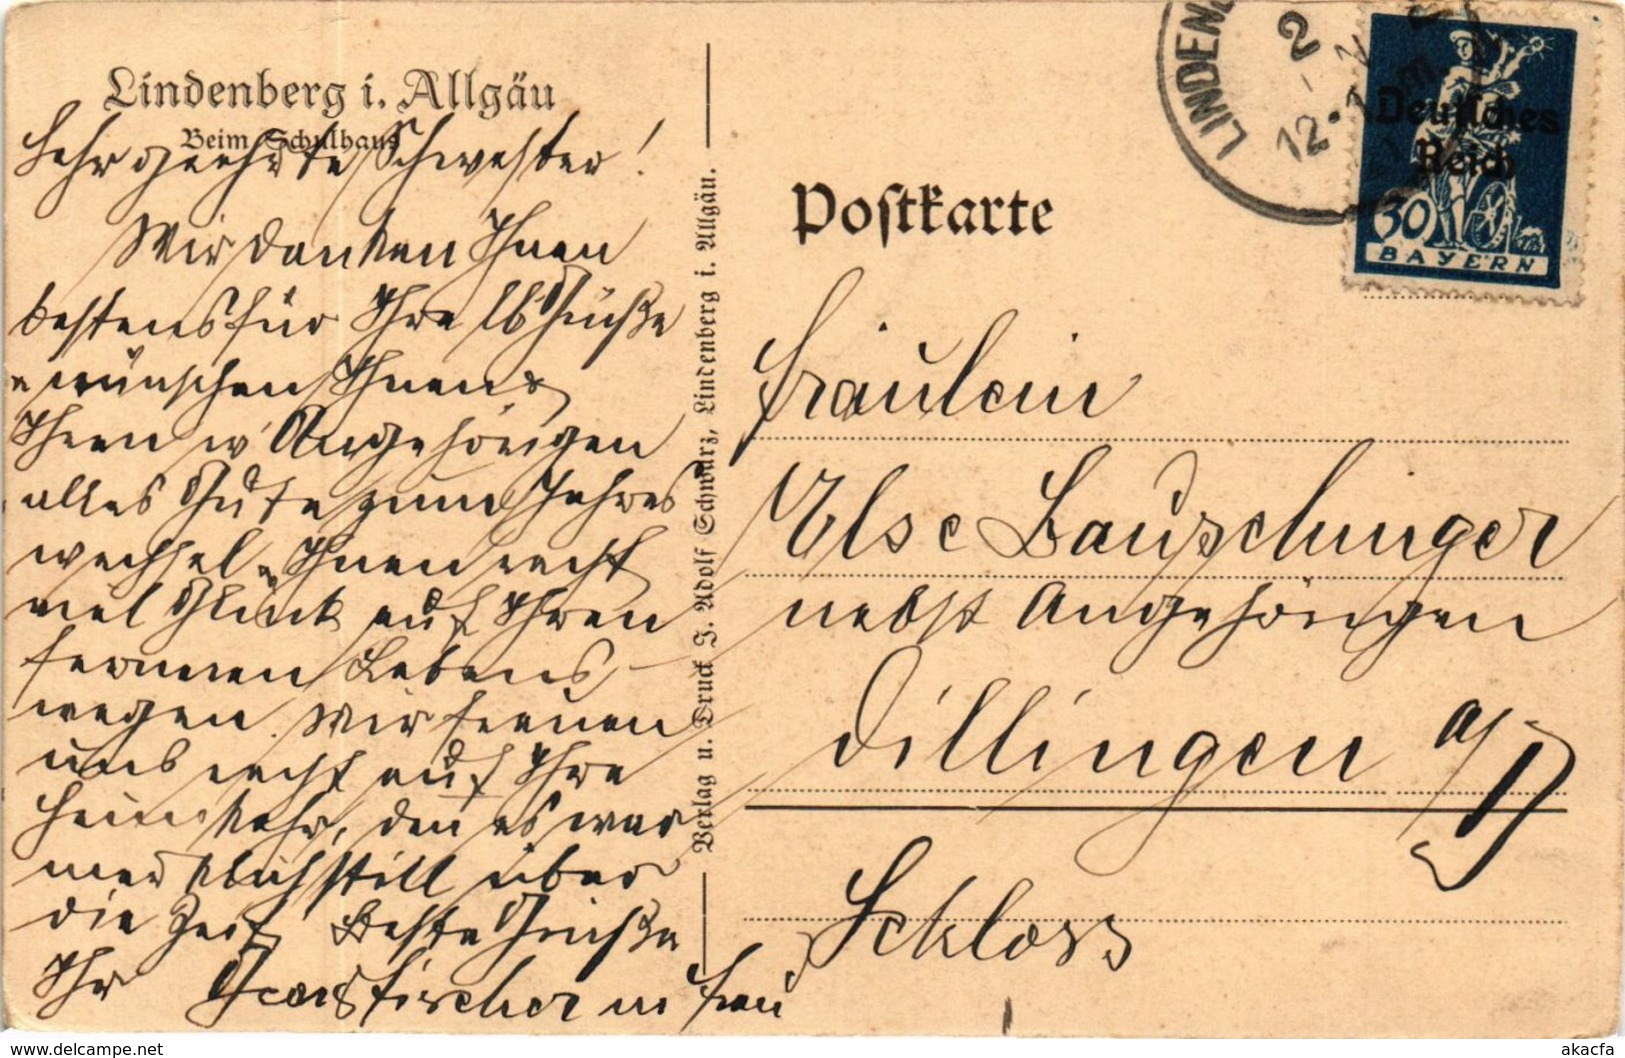 Lindenberg i. Allgäu
Beim Schulhaus
Sehr geehrte Schwester!
Wir danken Ihnen
bestens für Ihre lb. Grüße
u wünschen Ihnen &
Ihren w. Angehörigen
alles Gute zum Jahres
wechsel u. Ihnen recht
viel Glück auf Ihren
ferneren Lebens
wegen. Wir freuen
uns recht auf Ihre
Heimkehr, den es war
merklich still über
die Zeit. Beste Grüße
Ihr Georg Fischer m Frau
Verlag u. Druck J. Adolf Schwarz, Lindenberg i. Allgäu.
Postkarte
LINDENB
2
12-1
Deutsches
Reich
30
BAYERN
Fräulein
Else Bauschinger
nebst Angehörigen
Dillingen a/D
Schloss
delcampe.net
akacfa